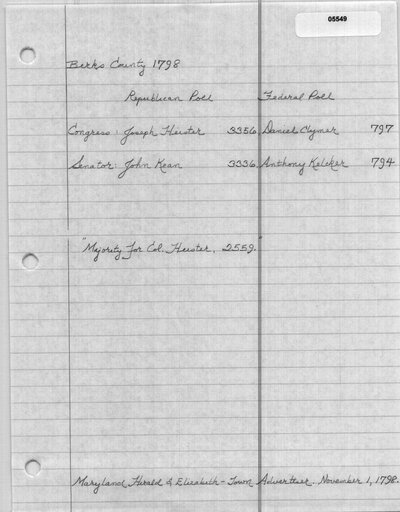 05549
Berks County 1798
Republican Poll Federal Poll
Congress: Joseph Heister 3356 Daniel Clymer 797
Senator: John Kean 3336 Anthony Kelcker 794
"Majority for Col. Heister, 2559."
Maryland Herald & Elizabeth-Town Advertiser. November 1, 1798.